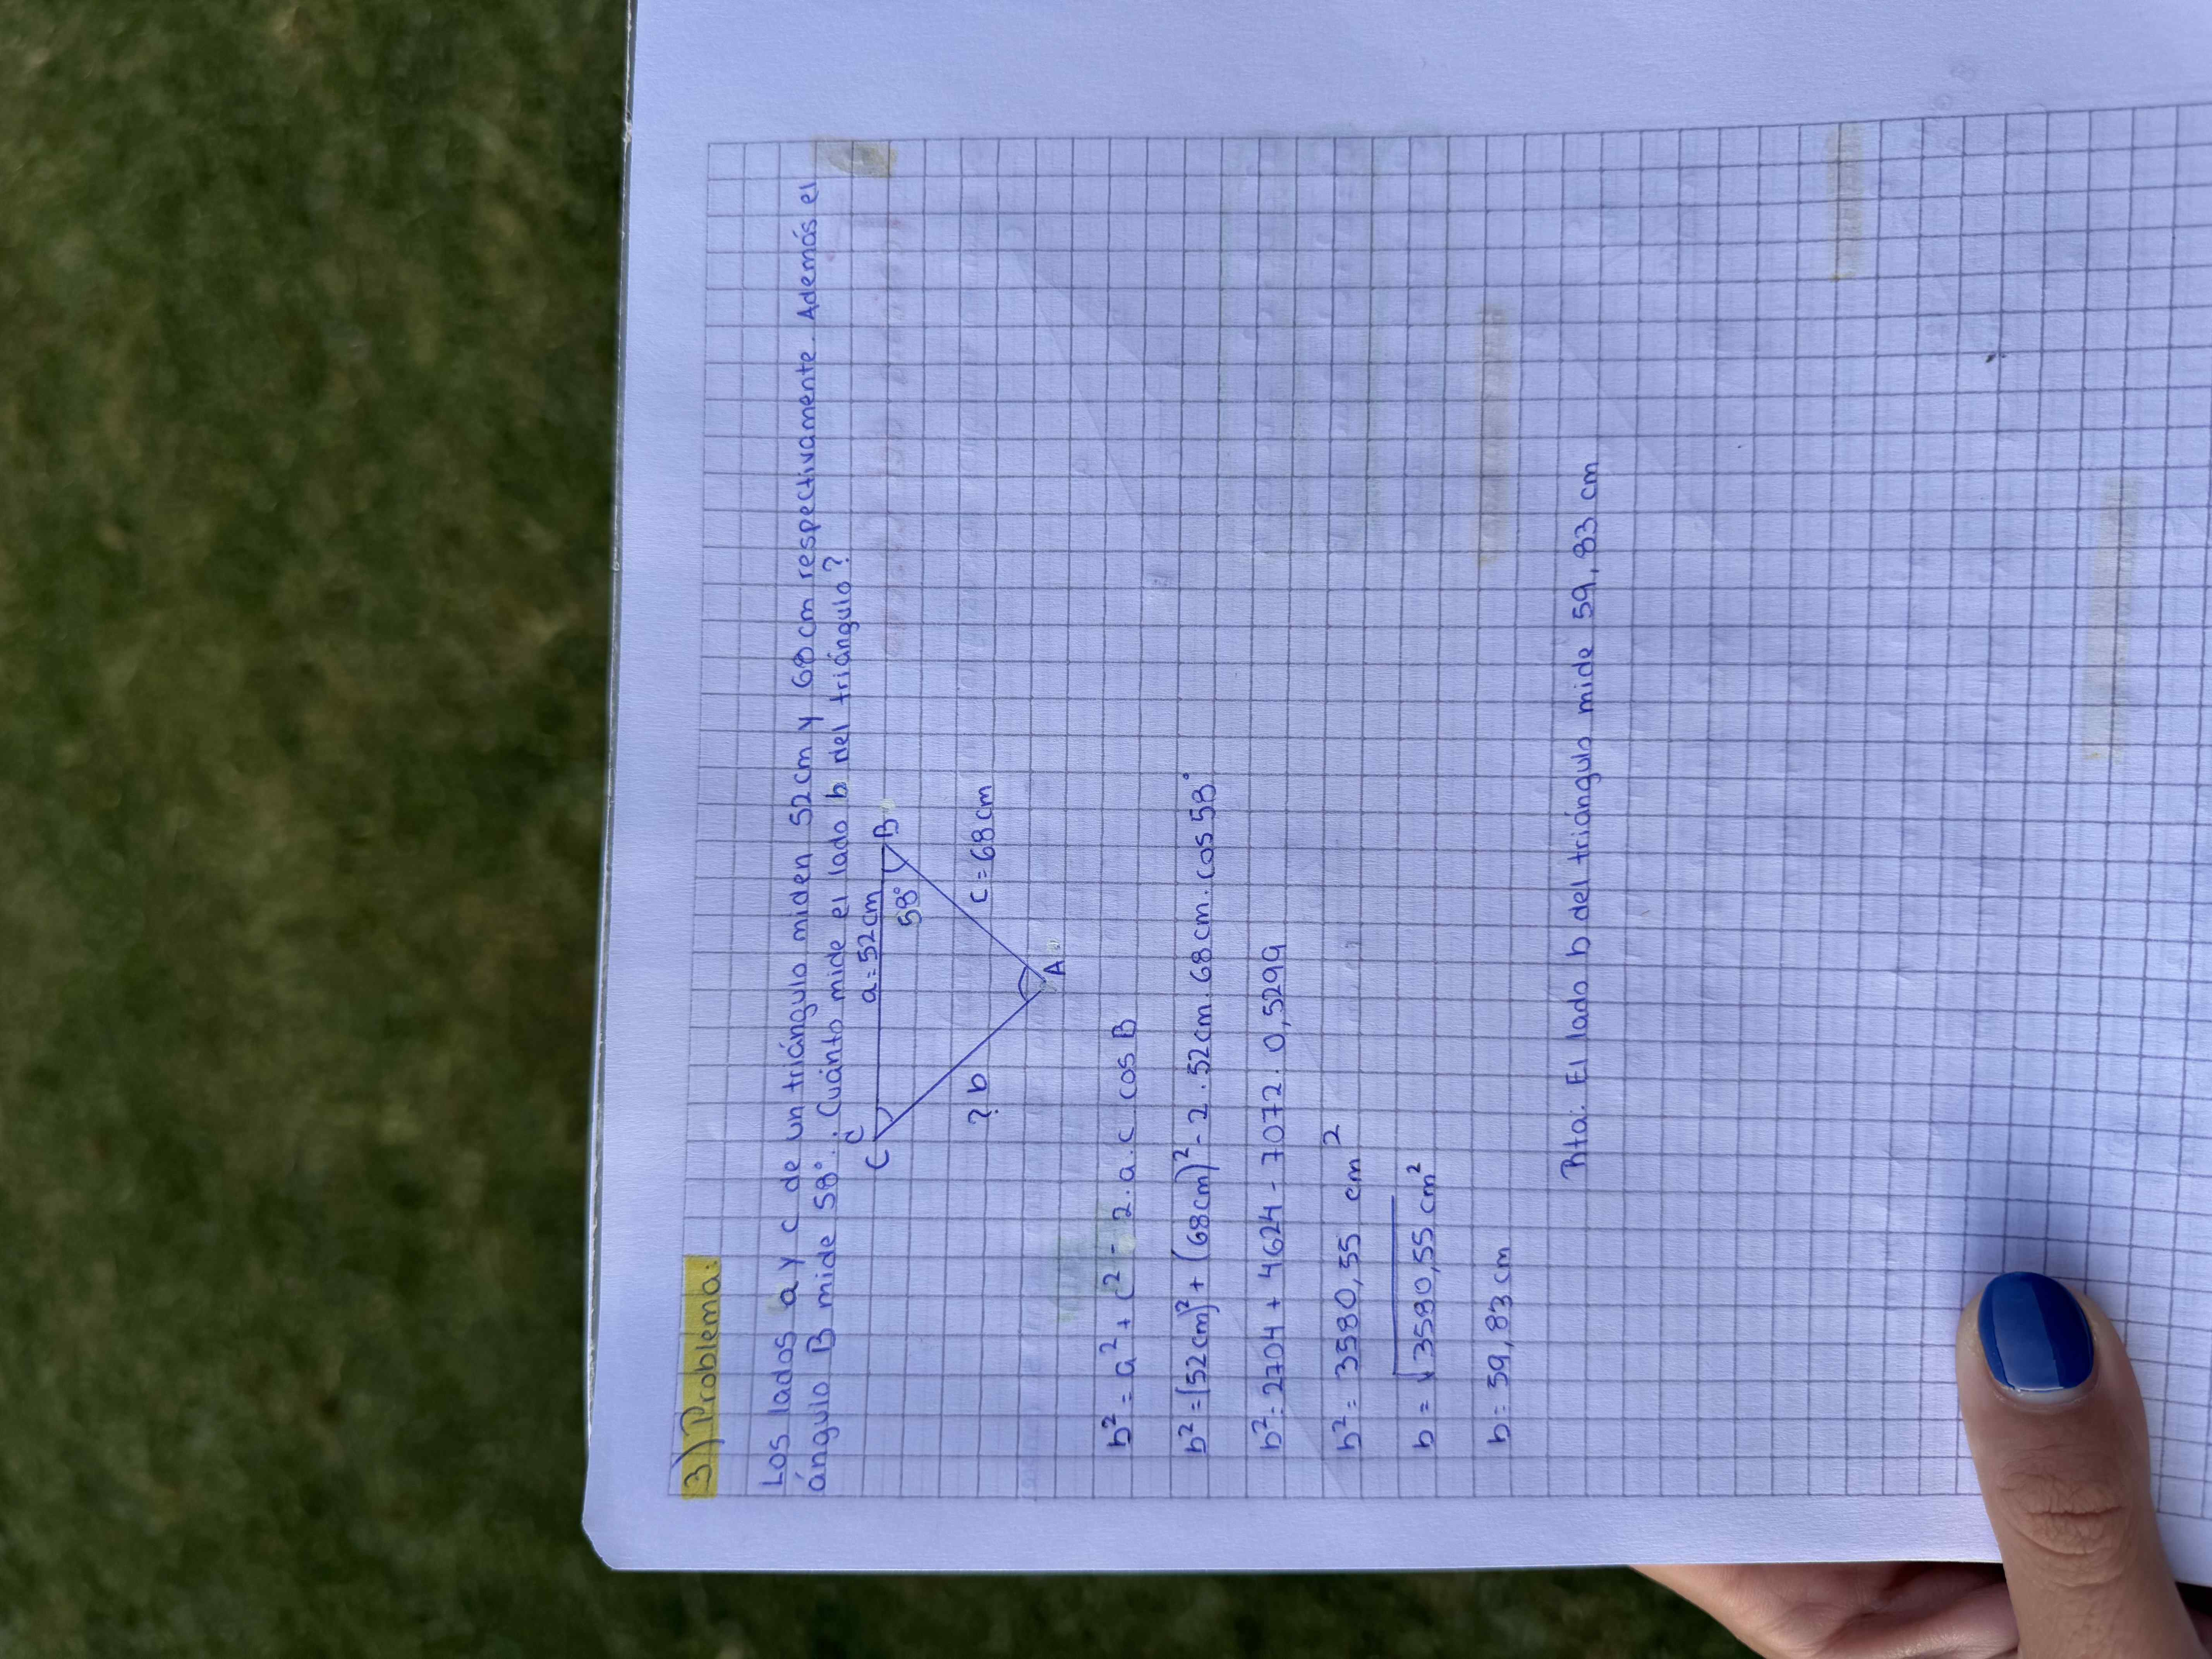 3) Problema:
Los lados a y c de un triángulo miden 52cm y 68cm respectivamente. Además el
ángulo B mide 58°. ¿Cuánto mide el lado b del triángulo?
C
C
a=52cm
B
58°
? b
c=68cm
A
b² = a² + c² - 2.a.c. cos B
b² = (52cm)² + (68cm)² - 2.52cm.68cm.cos 58°
b² = 2704 + 4624 - 7072.0,5299
b² = 3580,55 cm²
b = √3580,55 cm²
b = 59,83cm
Rta: El lado b del triángulo mide 59,83 cm